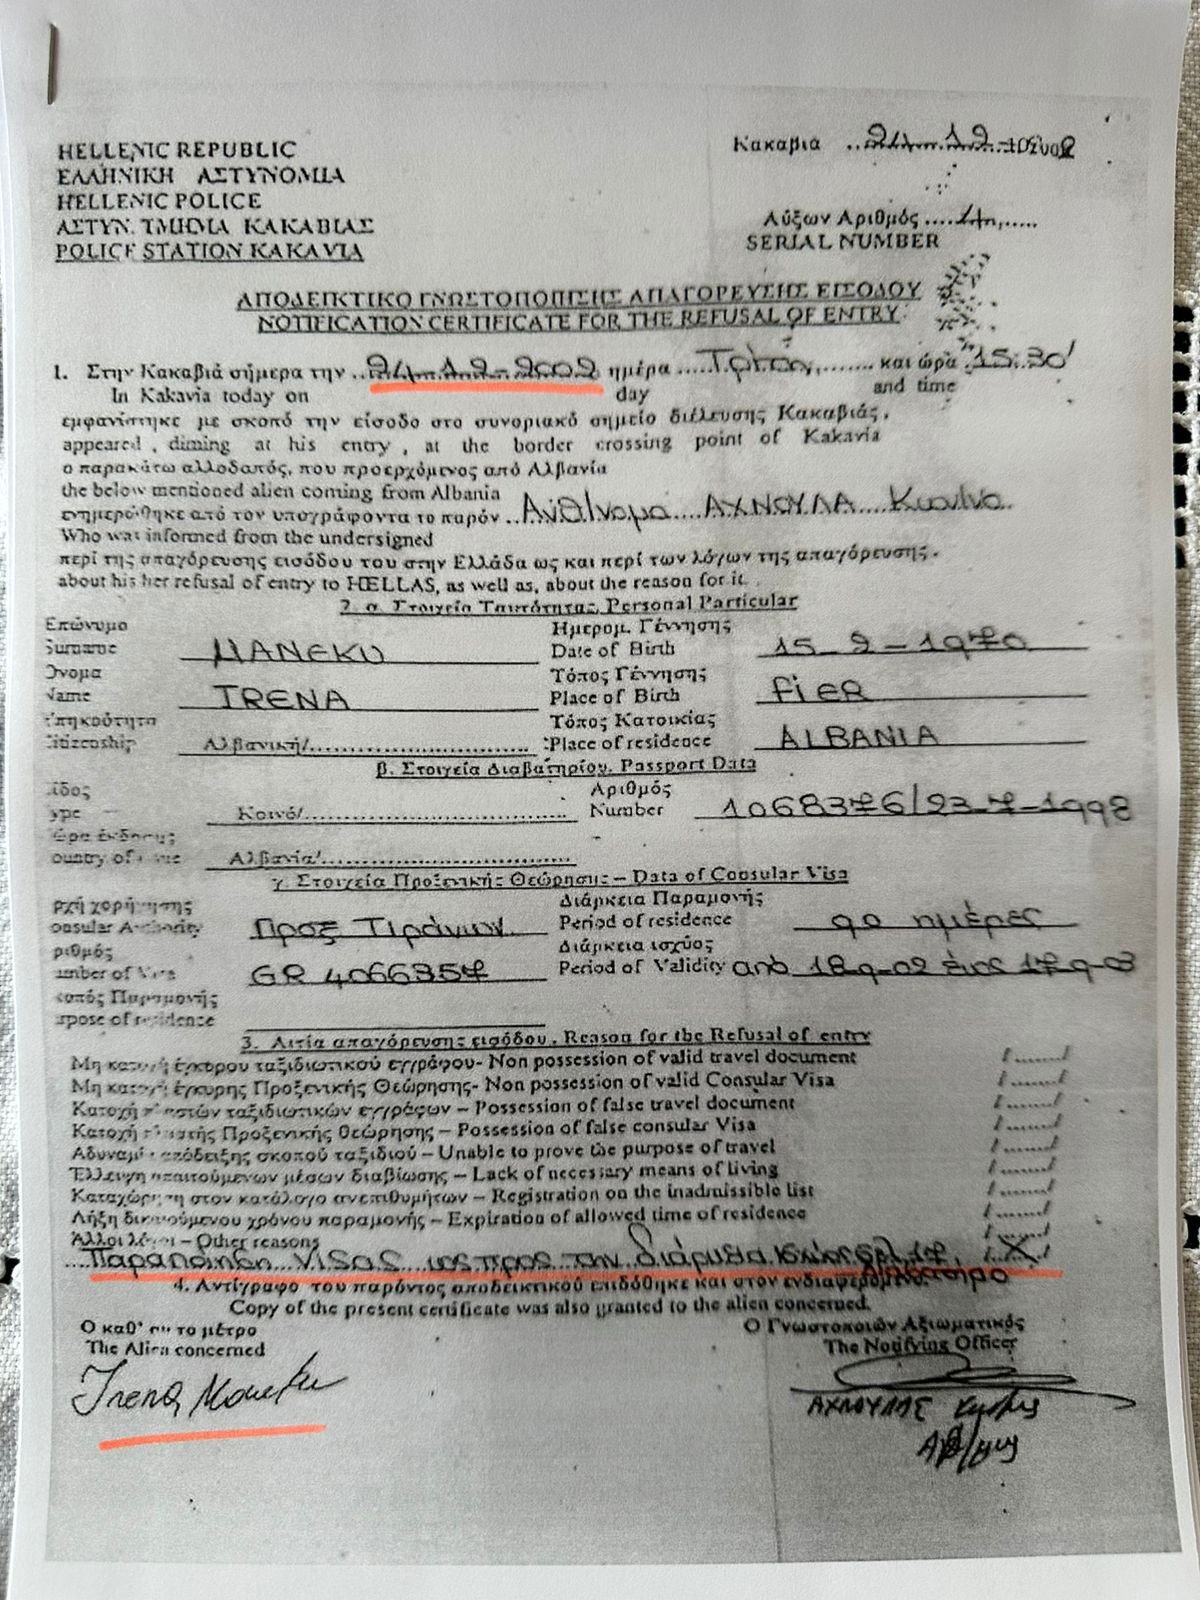 HELLENIC REPUBLIC
ΕΛΛΗΝΙΚΗ ΑΣΤΥΝΟΜΙΑ
HELLENIC POLICE
ΑΣΤΥΝ. ΤΜΗΜΑ ΚΑΚΑΒΙΑΣ
POLICE STATION KAKAVIA
Κακαβιά
Αύξων Αριθμός
SERIAL NUMBER
ΑΠΟΔΕΙΚΤΙΚΟ ΓΝΩΣΤΟΠΟΙΗΣΗΣ ΑΠΑΓΟΡΕΥΣΗΣ ΕΙΣΟΔΟΥ
NOTIFICATION CERTIFICATE FOR THE REFUSAL OF ENTRY
1. Στην Κακαβιά σήμερα την 24-12-2002 ημέρα Τρίτη και ώρα 15:30'
In Kakavia today on day and time
εμφανίστηκε με σκοπό την είσοδο στο συνοριακό σημείο διέλευσης Κακαβιάς,
appeared, diming at his entry, at the border crossing point of Kakavia
ο παρακάτω αλλοδαπός, που προερχόμενος από Αλβανία
the below mentioned alien coming from Albania
ενημερώθηκε από τον υπογράφοντα το παρόν
Who was informed from the undersigned
περί της απαγόρευσης εισόδου του στην Ελλάδα ως και περί των λόγων της απαγόρευσης.
about his her refusal of entry to HELLAS, as well as, about the reason for it.
2. α. Στοιχεία Ταυτότητας, Personal Particular
Επώνυμο Ημερομ. Γέννησης
Surname MANEKU Date of Birth 15-2-1970
Όνομα Τόπος Γέννησης
Name IRENA Place of Birth FIER
Τόπος Κατοικίας
Αλβανική/ Place of residence ALBANIA
β. Στοιχεία Διαβατηρίου, Passport Data
Αριθμός
Κοινό/ Number 1068376/23-7-1998
Αλβανία/
γ. Στοιχεία Προξενικής Θεώρησης – Data of Consular Visa
Διάρκεια Παραμονής
Προξ Τιράνων Period of residence 90 ημέρες
Διάρκεια ισχύος
GR 4066357 Period of Validity από 18-9-02 έως 17-9-03
3. Αιτία απαγόρευσης εισόδου, Reason for the Refusal of entry
Μη κατοχή έγκυρου ταξιδιωτικού εγγράφου- Non possession of valid travel document /......./
Μη κατοχή έγκυρης Προξενικής Θεώρησης- Non possession of valid Consular Visa /......./
Κατοχή πλαστών ταξιδιωτικών εγγράφων – Possession of false travel document /......./
Κατοχή πλαστής Προξενικής θεώρησης – Possession of false consular Visa /......./
Αδυναμία απόδειξης σκοπού ταξιδιού – Unable to prove the purpose of travel /......./
Έλλειψη απαιτούμενων μέσων διαβίωσης – Lack of necessary means of living /......./
Καταχώρηση στον κατάλογο ανεπιθυμήτων – Registration on the inadmissible list /......./
Λήξη δικαιούμενου χρόνου παραμονής – Expiration of allowed time of residence /......./
Άλλοι λόγοι – Other reasons
Παραποίηση VISAS ως προς την διάρκεια /..X../
4. Αντίγραφο του παρόντος αποδεικτικού επιδόθηκε και στον ενδιαφερόμενο
Copy of the present certificate was also granted to the alien concerned.
Ο καθ' ου το μέτρο Ο Γνωστοποιών Αξιωματικός
The Alien concerned The Notifying Officer
Irena Maneku